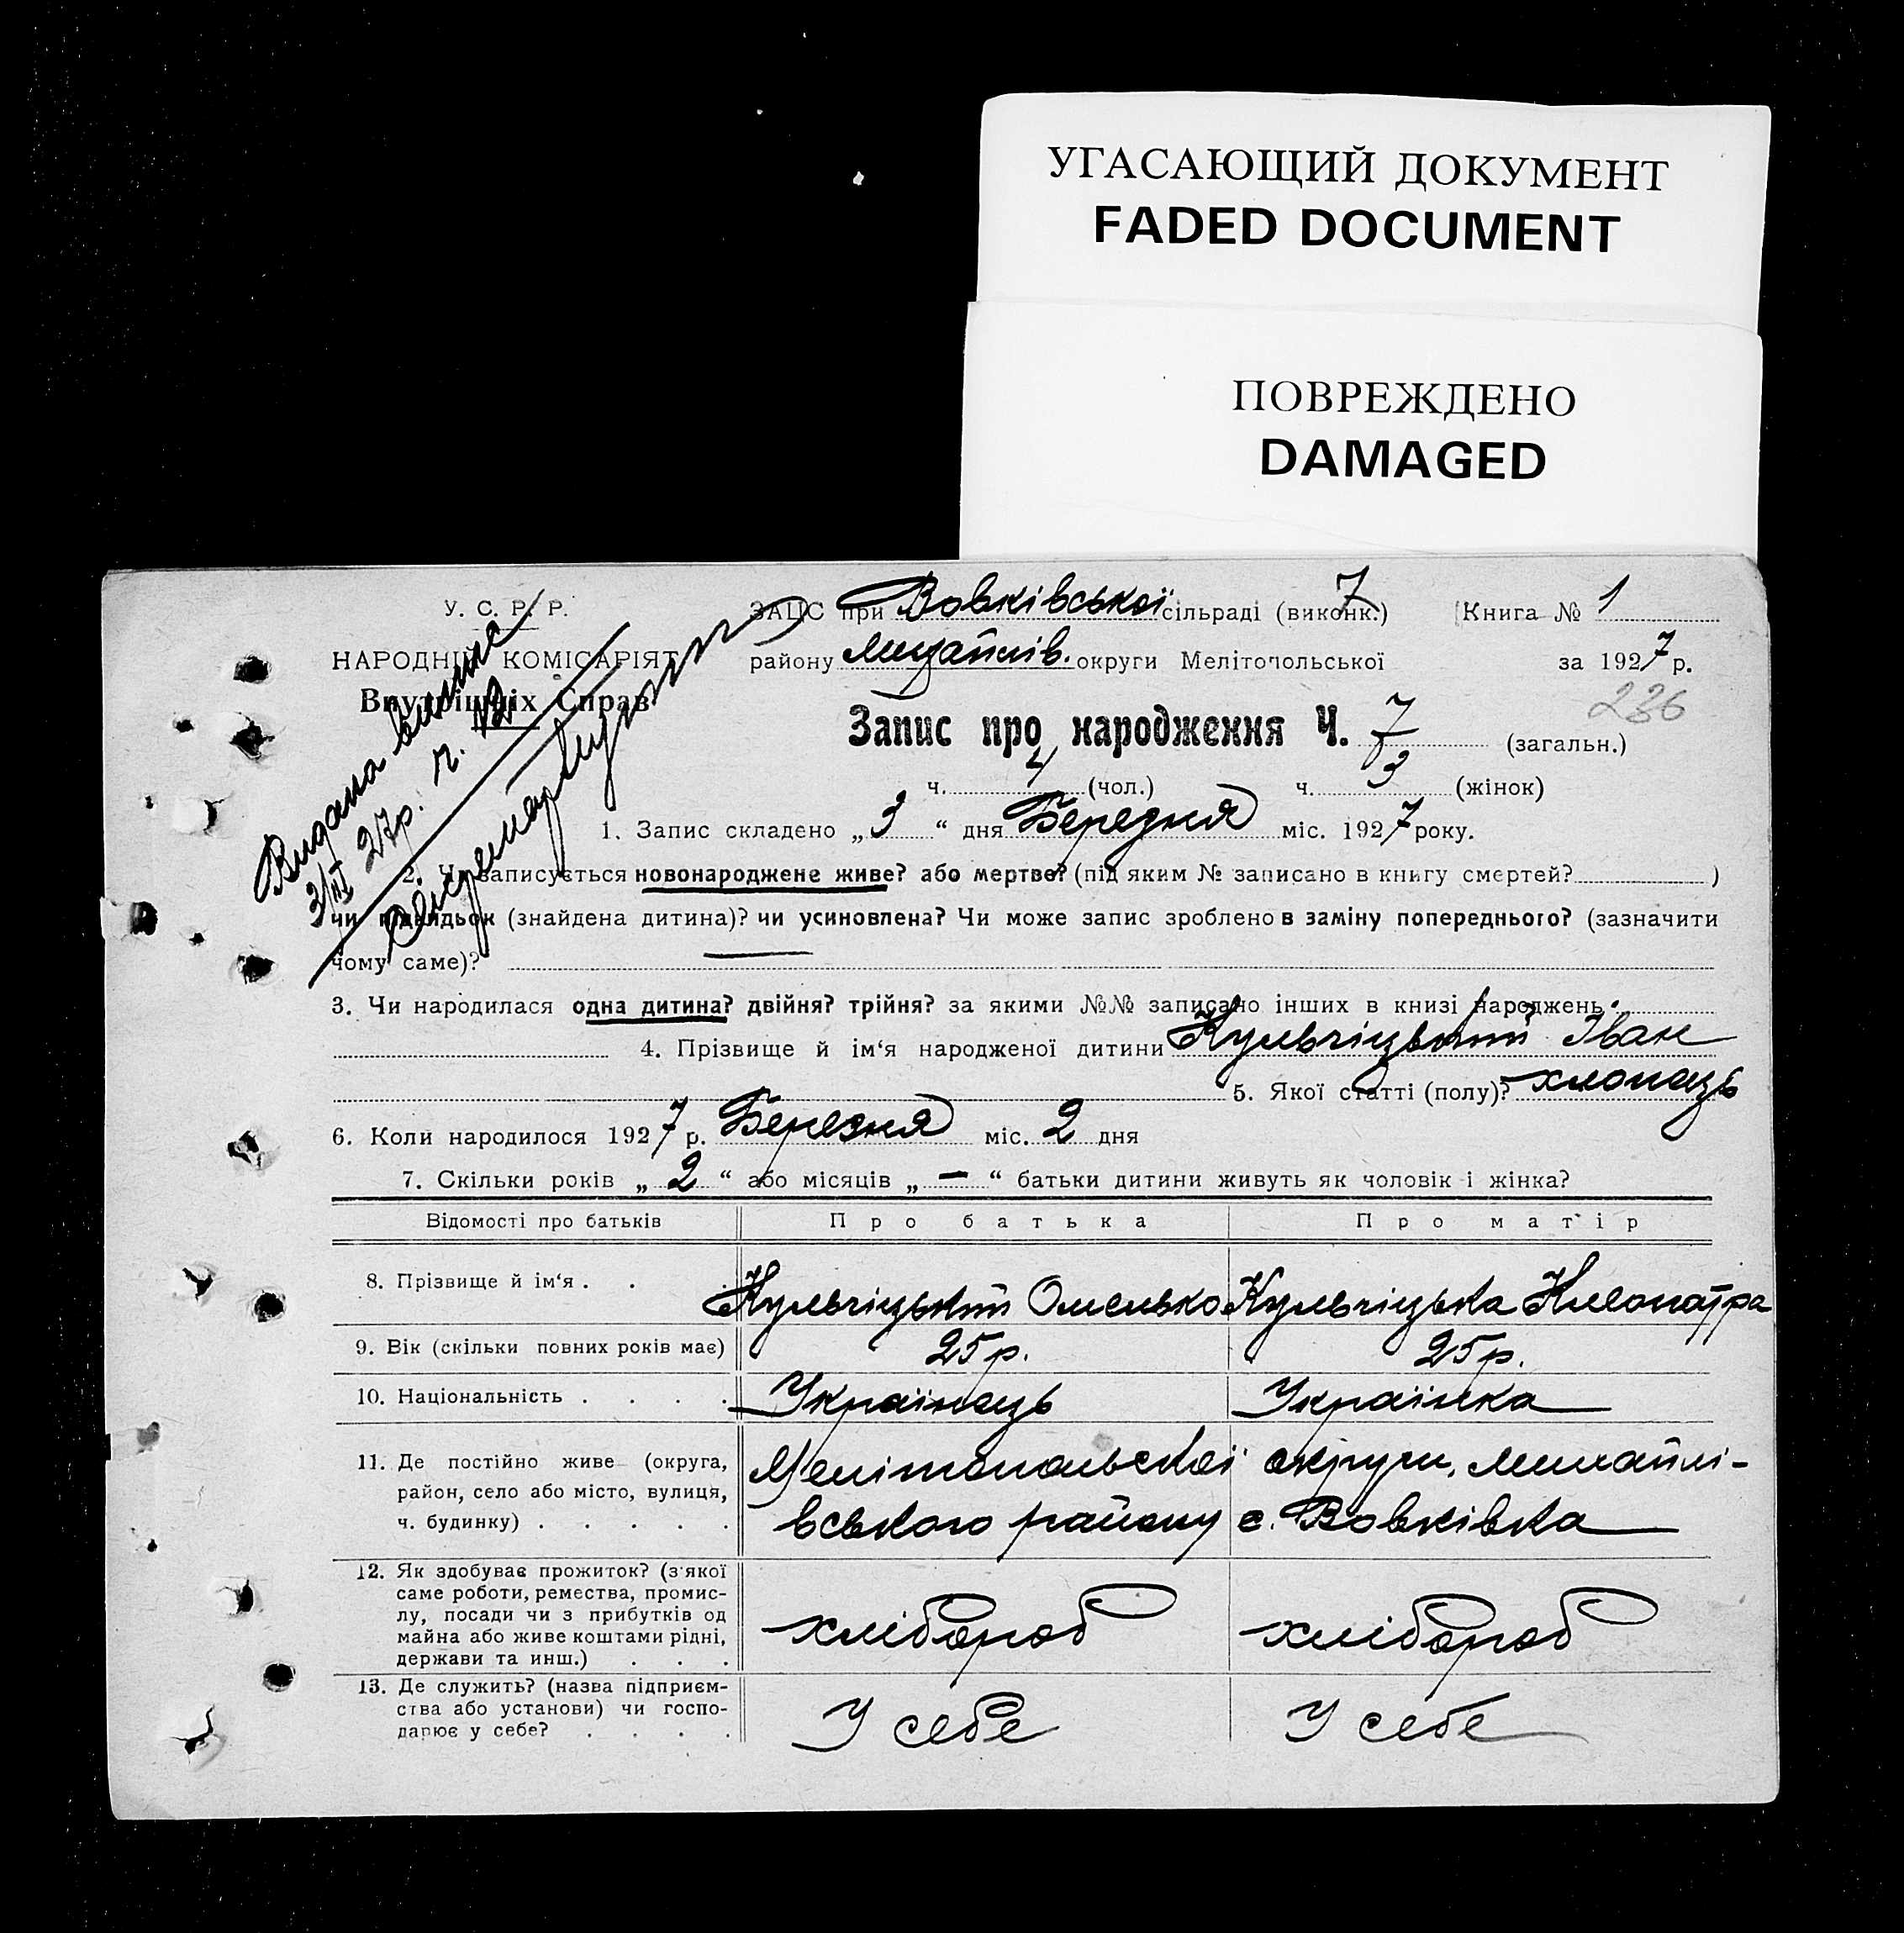 УГАСАЮЩИЙ ДОКУМЕНТ
FADED DOCUMENT
ПОВРЕЖДЕНО
DAMAGED
У. С. Р. Р.
НАРОДНІЙ КОМІСАРІЯТ
Внутрішніх Справ
Видана виписка
3/III 27р. ч. 12
ЗАЦС при Вовківської сільраді (виконк.) 7 Книга № 1
району Михайлів. округи Мелітопольської за 1927 р.
236
Запис про народження Ч. 7 (загальн.)
ч. 4 (чол.) ч. 3 (жінок)
1. Запис складено „3“ дня Березня міс. 1927 року.
2. Чи записується новонароджене живе? або мертве? (під яким № записано в книгу смертей? )
чи підкидьок (знайдена дитина)? чи усиновлена? Чи може запис зроблено в заміну попереднього? (зазначити
чому саме)?
3. Чи народилася одна дитина? двійня? трійня? за якими №№ записано інших в книзі народжень?
4. Прізвище й ім‘я народженої дитини Кульчіцький Іван
5. Якої статті (полу)? хлопець
6. Коли народилося 1927 р. Березня міс. 2 дня
7. Скільки років „2“ або місяців „—“ батьки дитини живуть як чоловік і жінка?
Відомості про батьків Про батька Про матір
8. Прізвище й ім‘я . . . Кульчіцький Омелько Кульчіцька Клеопатра
9. Вік (скільки повних років має) 25 р. 25 р.
10. Національність . . . . Українець Українка
11. Де постійно живе (округа, Мелітопольської округи, Михайлі-
район, село або місто, вулиця, вського району с. Вовківка
ч. будинку) . . . . .
12. Як здобуває прожиток? (з'якої
саме роботи, ремества, промис-
лу, посади чи з прибутків од хлібороб хлібороб
майна або живе коштами рідні,
держави та инш.) . . .
13. Де служить? (назва підприєм-
ства або установи) чи госпо- У себе У себе
дарює у себе? . . . .